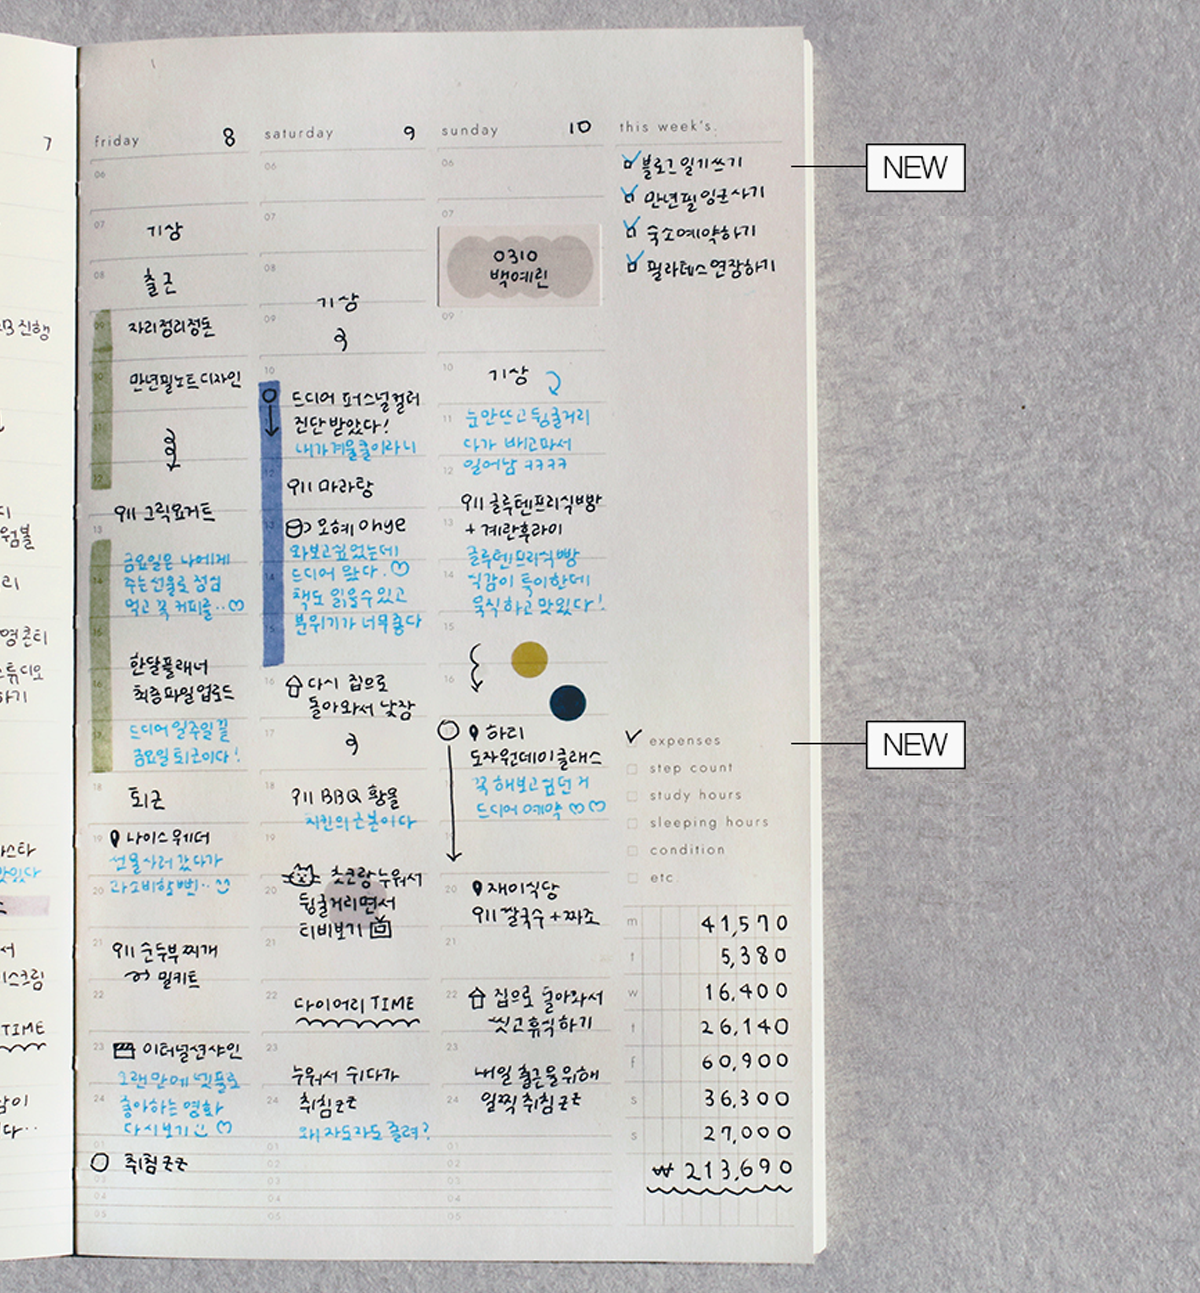 7
friday 8
06
07
기상
08
출근
09
자리정리정돈
10
만년필노트디자인
11
12
önll 그릭요거트
13
금요일은 나에게
14
주는선물로 점심
먹고 꼭 커피를..♡
15
한달플래너
16
최종파일업로드
17
드디어 일주일 끝
금요일퇴근이다!
18
퇴근
19
나이스웨더
선물사러 갔다가
20
과소비할뻔..
21
순두부찌개
밀키트
22
23
이터널션샤인
오랜만에 넷플로
24
좋아하는 영화
다시보기 ♡
01
취침zz
02
03
04
05
saturday 9
06
07
08
기상
09
10
드디어 퍼스널컬러
진단받았다!
내가겨울쿨이라니
12
마라탕
13
오혜 ohye
와보고싶었는데
14
드디어 왔다.♡
책도 읽을수있고
15
분위기가 너무좋다
16
다시 집으로
돌아와서 낮잠
17
18
BBQ 황올
치킨의근본이다
19
초코랑누워서
20
뒹굴거리면서
티비보기
21
22
다이어리 TIME
23
누워서 쉬다가
24
취침zz
왜자도자도 졸려?
01
02
03
04
05
sunday 10
06
07
0310
백예린
09
10
기상
11
눈안뜨고뒹굴거리
다가 배고파서
12
일어남 ㅋㅋㅋㅋ
글루텐프리식빵
13
+ 계란후라이
글루텐프리식빵
14
식감이 특이한데
묵직하고맛있다!
15
16
17
하리
도자원데이클래스
꼭해보고싶던거
드디어예약♡♡
20
재이식당
쌀국수+짜조
21
22
집으로 돌아와서
씻고휴식하기
23
내일 출근을위해
24
일찍취침zz
01
02
03
04
05
this week's.
블로그일기쓰기
만년필잉크사기
숙소예약하기
필라테스연장하기
expenses
step count
study hours
sleeping hours
condition
etc.
m 41,570
t 5,380
w 16,400
t 26,140
f 60,900
s 36,300
s 27,000
₩ 213,690
NEW
NEW